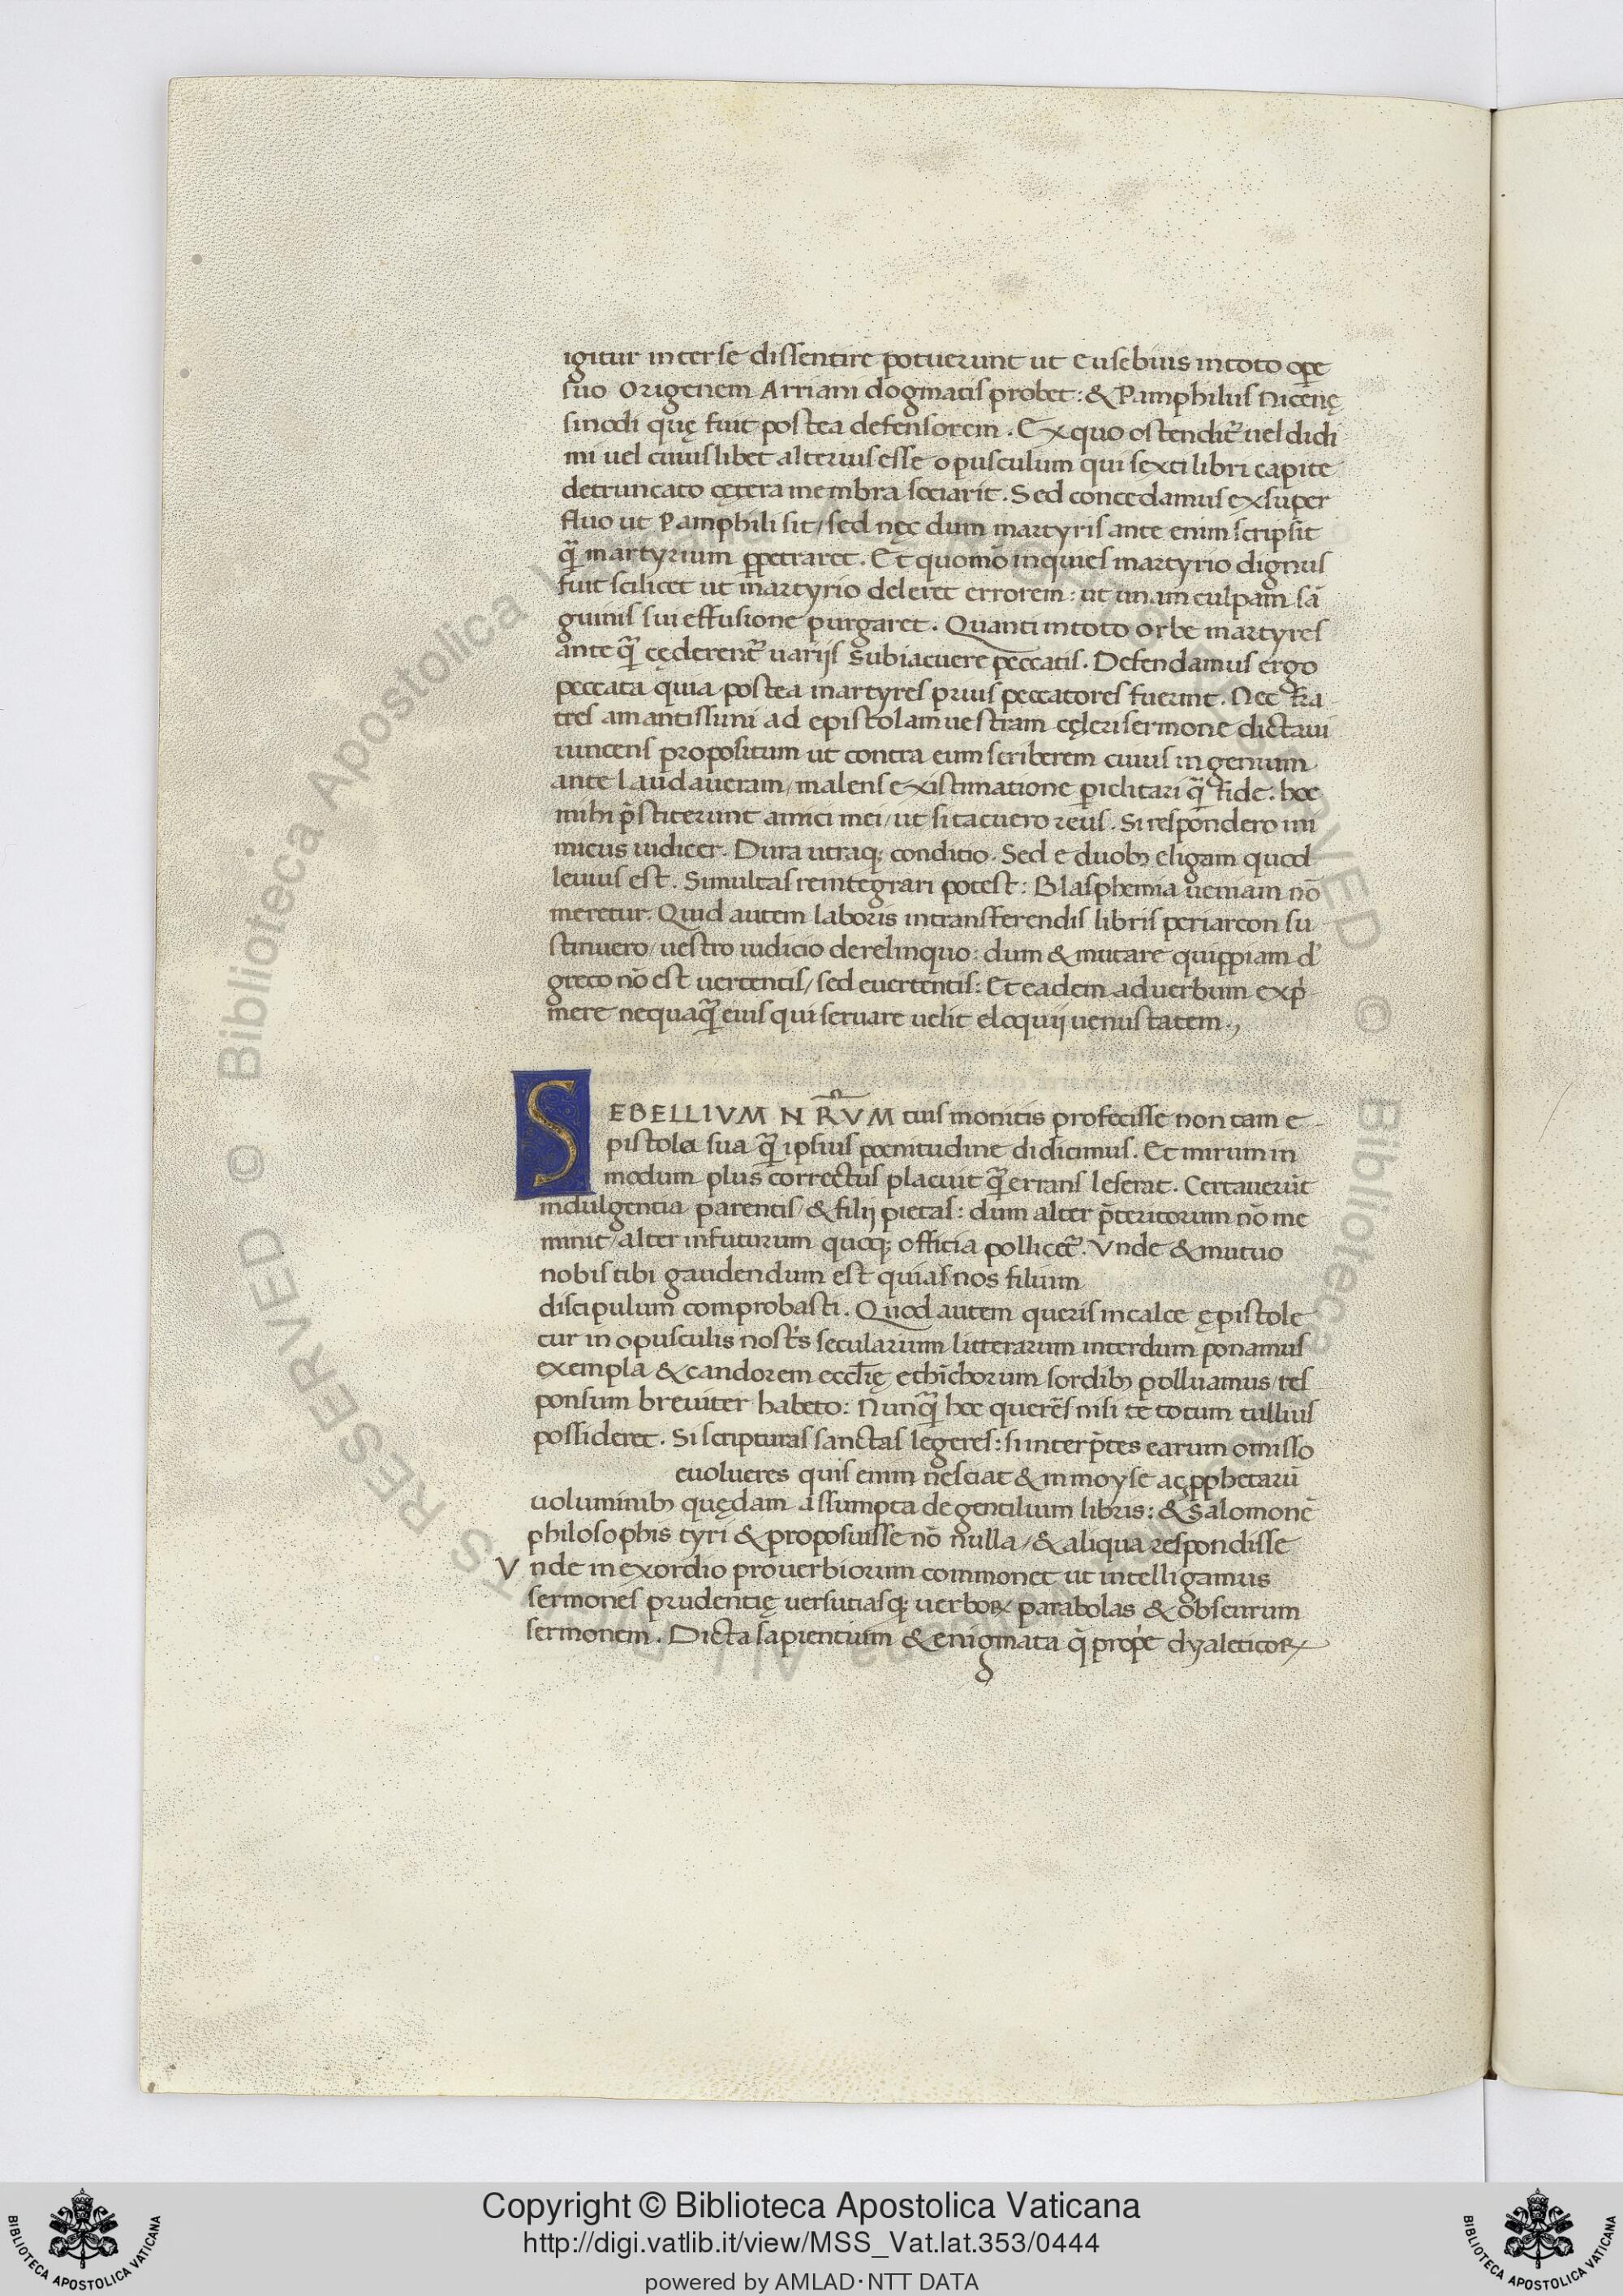 igitur inter se dissentire potuerunt ut eusebius in toto ope
suo Origenem Arriani dogmatis probet: & Pamphilus nicenę
sinodi quę fuit postea defensorem. Ex quo ostendit᷒ uel didi
mi uel cuiuslibet alterius esse opusculum qui sexti libri capite
detruncato cętera membra sociarit. Sed concedamus ex super
fluo ut Pamphili sit/ sed nęc dum martyris ante enim scripsit
q̃ martyrium ꝑpetraret. Et quomō inquies martyrio dignus
fuit scilicet ut martyrio deleret errorem: ut unam culpam sā
guinis sui effusione purgaret. Quanti in toto orbe martyres
ante q̃ cęderent᷒ uarijs subiacuere peccatis. Defendamus ergo
peccata quia postea martyres prius peccatores fuerunt. Nec fra
tres amantissimi ad epistolam uestram cęleri sermone dictaui
uincens propositum ut contra eum scriberem cuius ingenium
ante laudaueram/ malens existimatione ꝑiclitari q̃ fide: hoc
mihi p̄stiterunt amici mei/ ut si tacuero reus. Si respondero ini
micus iudicer. Dura utraq; conditio. Sed e duobꝫ eligam quod
leuius est. Simultas reintegrari potest: Blasphemia ueniam nō
meretur. Quid autem laboris in transferendis libris periarcon su
stinuero/ uestro iudicio derelinquo: dum & mutare quippiam d'
greco nō est uertentis/ sed euertentis: Et eadem ad uerbum exp̓
mere nequaq̃ eius qui seruare uelit eloquij uenustatem.,
SEBELLIVM N R̃VM tuis monitis profecisse non tam e
pistola sua q̃ ipsius poenitudine didicimus. Et mirum in
modum plus correctus placuit q̃ errans leserat. Certauerūt
indulgentia parentis/ & filij pietas: dum alter p̄teritorum nō me
minit/ alter in futurum quoq; officia pollicet᷒. Vnde & mutuo
nobis tibi gaudendum est quia s nos filium
discipulum comprobasti. Quod autem queris in calce ępistole
cur in opusculis nost̓s secularium litterarum interdum ponamus
exempla & candorem eccl̄ię ethnichorum sordibꝫ polluamus/ res
ponsum breuiter habeto: Nunq̃ hoc querēs nisi te totum tullius
possideret. Si scripturas sanctas legeres: si interp̄tes earum omisso
euolueres quis enim nesciat & in moyse ac ꝓphetarū
uoluminibꝫ quędam assumpta de gentilium libris: & Salomonē
philosophis tyri & proposuisse nō nulla/ & aliqua respondisse
Vnde in exordio prouerbiorum commonet ut intelligamus
sermones prudentię uersutiasq; uerboꝝ parabolas & obscurum
sermonem. Dicta sapientium & enigmata q̄ prop̓e dyaleticoꝝ
Copyright © Biblioteca Apostolica Vaticana
http://digi.vatlib.it/view/MSS_Vat.lat.353/0444
powered by AMLAD·NTT DATA